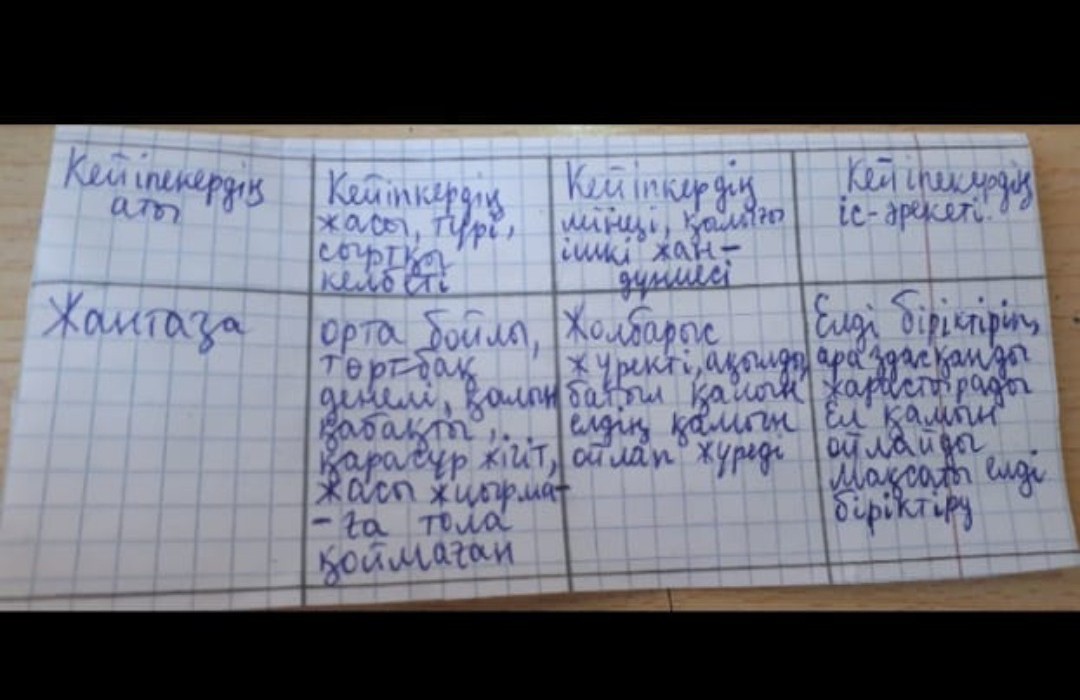 Кейіпекердің
аты
Кейіпкердің
жасы, түрі,
сыртқы
келбеті
Кейіпкердің
мінезі,
ішкі жан-
дүниесі
Кейіпекердің
іс-әрекеті.
Жантаза
орта бойлы,
төртбақ
денелі, қалың
қабақты,
қарасұр жігіт,
жасы жиырма-
-ға тола
қоймаған
Жолбарыс
жүректі, ақылды,
батыл
елдің қамын
ойлап жүреді
Елді біріктіріп,
араздасқанды
Ел қамын
ойлайды
Мақсаты елді
біріктіру